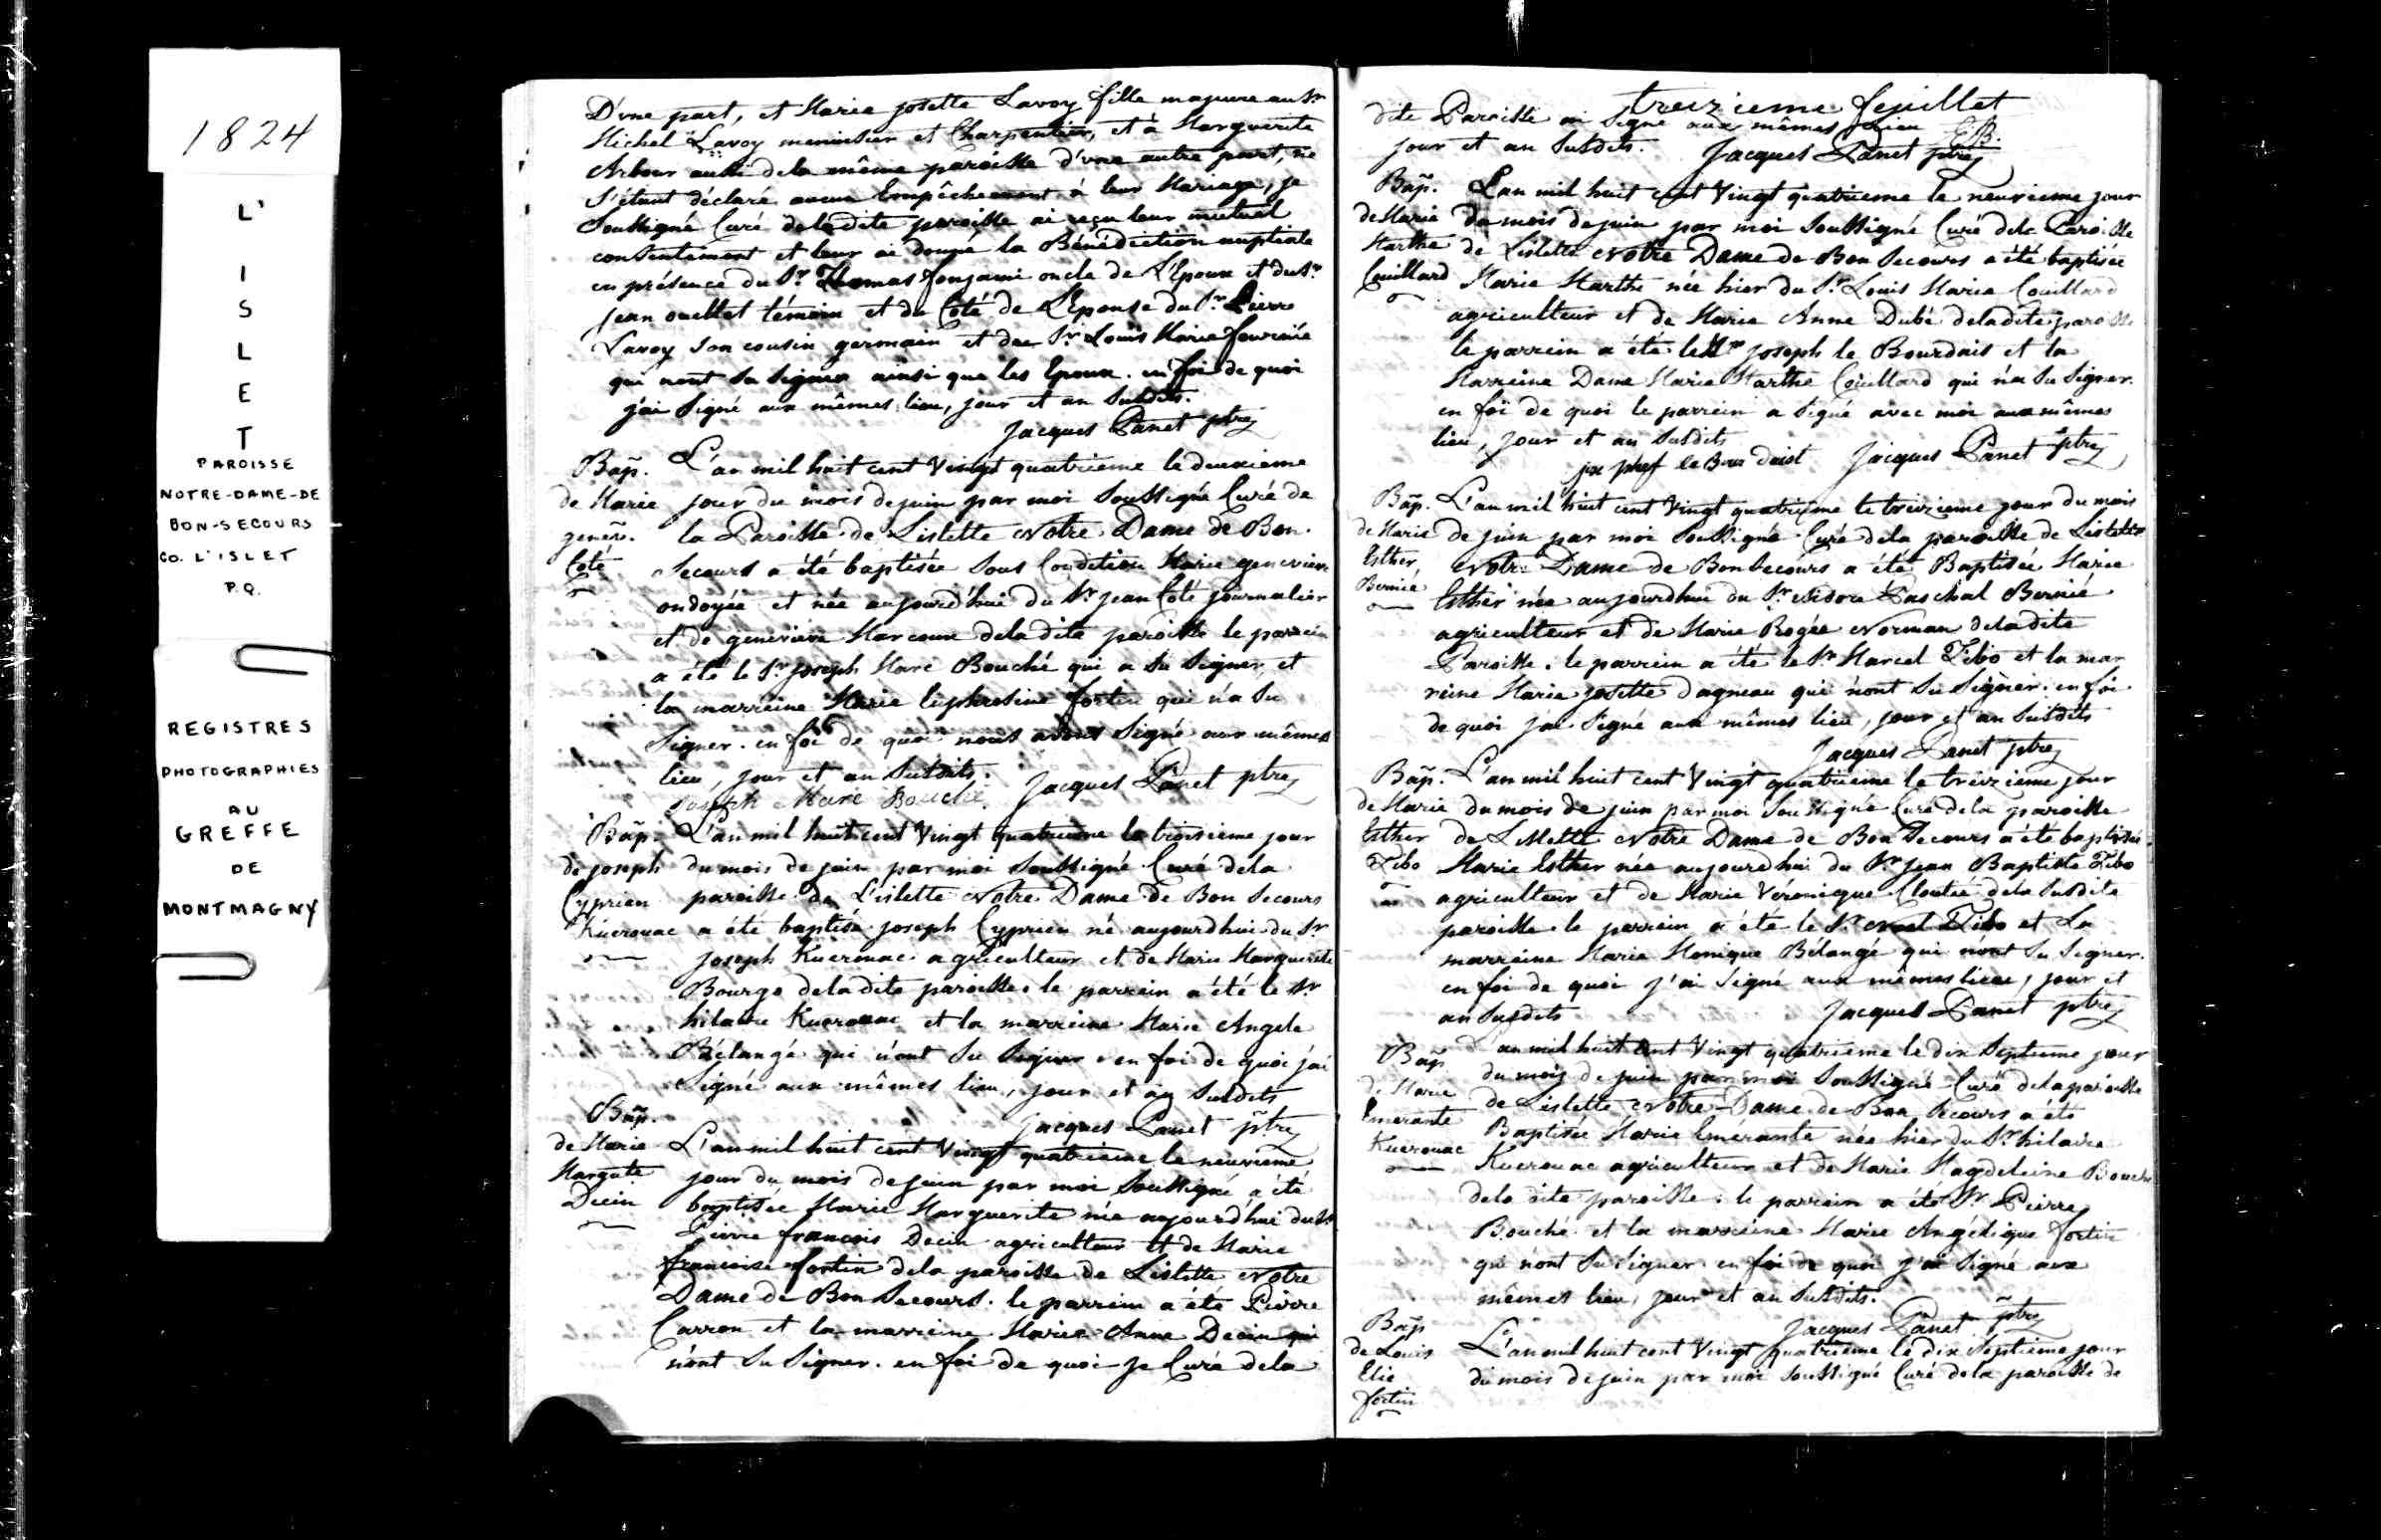 1824
L'
I
S
L
E
T
PAROISSE
NOTRE-DAME-DE
BON-SECOURS
CO. L'ISLET
P.Q.
REGISTRES
PHOTOGRAPHIES
AU
GREFFE
DE
MONTMAGNY
D'une part, et Marie josette Lavoy fille majeure au Sr
Michel Lavoy menuisier et Charpentier, et à Marguerite
Arbour aussi dela même paroisse d'une autre part, ne
s'étant déclaré aucun Empêchement à leur Mariage, je
Soussigné Curé deladite paroisse ai reçu leur mutuel
consentement et leur ai donné la Bénédiction nuptiale
en présence du Sr Thomas fonjami oncle de L'Epoux et du Sr
jean ouellet témoin et du Coté de L'Epouse du Sr Pierre
Lavoy son cousin germain et du Sr Louis Marie
qui nont su signer ainsi que les Epoux. en foi de quoi
j'ai Signé aux mêmes lieu, jour et an Susdits.
Jacques Panet ptre
Bap. L'an mil huit cent Vingt quatrieme le deuxieme
de Marie jour du mois de juin par moi Soussigné Curé de
genev. la Paroisse de Lislette Notre Dame de Bon
Coté Secours a été baptisée Sous Condition Marie genevieve
ondoyée et née aujourd'hui du Sr jean Coté journalier
et de genevieve Marcoux deladite paroisse le parrein
a été le Sr joseph Marc Bouché qui a Su Signer, et
la marreine Marie Euphrosine fortin qui n'a Su
Signer. en foi de quoi nous avons Signé aux mêmes
lieu, jour et an Susdits.
Joseph Marc Bouché Jacques Panet ptre
Bap. L'an mil huit cent Vingt quatrieme le troisieme jour
de joseph du mois de juin par moi Soussigné Curé dela
Cyprien paroisse de L'islette Notre Dame de Bon Secours
Kuerouac a été baptisé joseph Cyprien né aujourdhui du Sr
joseph Kuerouac agriculteur et de Marie Marguerite
Bourgo deladite paroisse. le parrein a été le Sr
hilaire Kuerouac et la marreine Marie Angele
Bélangé qui n'ont Su Signer. en foi de quoi j'ai
Signé aux mêmes lieu, jour et an Susdits
Jacques Panet ptre
Bap.
de Marie L'an mil huit cent Vingt quatrieme le neuvieme
Margte jour du mois de juin par moi Soussigné a été
Decin baptisée Marie Marguerite née aujourdhui du Sr
Pierre francois Decin agriculteur et de Marie
francoise fortin dela paroisse de Lislette Notre
Dame de Bon Secours. le parrein a été Pierre
Carron et la marreine Marie Anne Decin qui
n'ont Su Signer. en foi de quoi je Curé dela
treizieme feuillet
dite Paroisse ai Signé aux mêmes lieu
jour et an Susdits. Jacques Panet ptre
Bap. L'an mil huit cent Vingt quatrieme le neuvieme jour
de Marie du mois de juin par moi Soussigné Curé dela Paroisse
Marthe de Lislette Notre Dame de Bon Secours a été baptisée
Couillard Marie Marthe née hier du Sr Louis Marie Couillard
agriculteur et de Marie Anne Dubé deladite paroisse
le parrein a été le Sr joseph le Bourdais et la
Marreine Dame Marie Marthe Couillard qui n'a Su Signer.
en foi de quoi le parrein a Signé avec moi aux mêmes
lieu, jour et an Susdits
Jacques Panet ptre
Bap. L'an mil huit cent Vingt quatrieme le treizieme jour du mois
de Marie de juin par moi Soussigné Curé dela paroisse de Lislette
Esther, Notre Dame de Bonsecours a été Baptisée Marie
Bernié Esther née aujourdhui du Sr isidore Paschal Bernié
agriculteur et de Marie Rogée Norman deladite
Paroisse. le parrein a été le Sr Marcel Tibo et la mar
reine Marie josette dagneau qui n'ont Su Signer. en foi
de quoi j'ai Signé aux mêmes lieu, jour et an Susdits
Jacques Panet ptre
Bap. L'an mil huit cent Vingt quatrieme le treizieme jour
de Marie du mois de juin par moi Soussigné Curé dela paroisse
Esther de Lislette Notre Dame de Bon Secours a été baptisée
Tibo Marie Esther née aujourdhui du Sr jean Baptiste Tibo
agriculteur et de Marie Véronique Cloutié dela Susdite
paroisse le parrein a été le Sr Noel Tibo et La
marreine Marie Monique Bélangé qui n'ont Su Signer.
en foi de quoi j'ai Signé aux mêmes lieu, jour et
an Susdits Jacques Panet ptre
Bap L'an mil huit cent Vingt quatrieme le dix Septieme jour
du mois de juin par moi Soussigné Curé dela paroisse
de Marie de Lislette Notre-Dame de Bon Secours a été
Emerante Baptisée Marie Emérante née hier du Sr hilaire
Kuerouac Kuerouac agriculteur et de Marie Magdeleine Bouché
dela dite paroisse. le parrein a été Sr Pierre
Bouché et la marreine Marie Angélique fortin
qui n'ont Su Signer. en foi de quoi j'ai Signé aux
mêmes lieu, jour et an Susdits.
Jacques Panet ptre
Bap
de Louis L'an mil huit cent Vingt quatrieme le dix Septieme jour
Elie du mois de juin par moi Soussigné Curé dela paroisse de
fortin